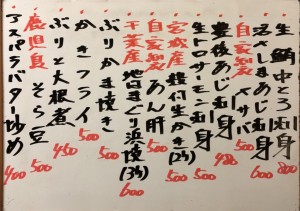 生鮪中とろ刺身 800
活〆しまあじ刺身 600
自家製 〆サバ 500
豊後あじ刺身 480
生トロサーモン刺身 500
宮城産 殻付生かき(2ケ) 500
自家製 あん肝 500
千葉産 地はまぐり浜焼(3ケ) 600
ぶりかま焼き
かきフライ 500
ぶりと大根煮 450
鹿児島 そら豆 500
アスパラバター炒め 400